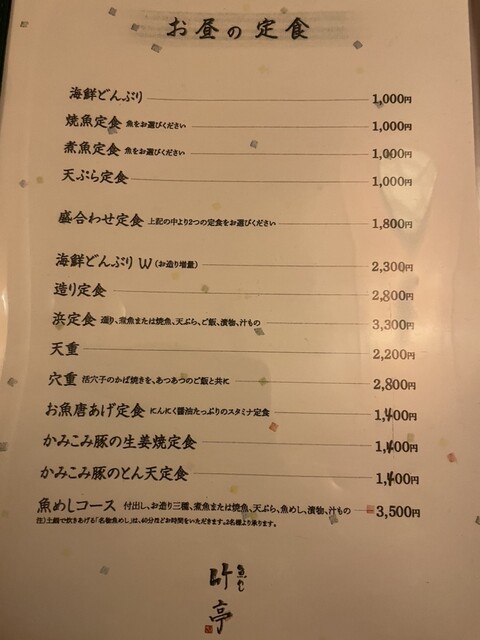 お昼の定食
海鮮どんぶり 1,000円
焼魚定食 魚をお選びください 1,000円
煮魚定食 魚をお選びください 1,000円
天ぷら定食 1,000円
盛合わせ定食 上記の中より2つの定食をお選びください 1,800円
海鮮どんぶりW(お造り増量) 2,300円
造り定食 2,800円
浜定食 造り、煮魚または焼魚、天ぷら、ご飯、漬物、汁もの 3,300円
天重 2,200円
穴重 活穴子のかば焼きを、あつあつのご飯と共に 2,800円
お魚唐あげ定食 にんにく醤油たっぷりのスタミナ定食 1,400円
かみこみ豚の生姜焼定食 1,400円
かみこみ豚のとん天定食 1,400円
魚めしコース 付出し、お造り三種、煮魚または焼魚、天ぷら、魚めし、漬物、汁もの 3,500円
注)土鍋で炊きあげる「名物魚めし」は、40分ほどお時間をいただきます。2名様より承ります。
魚めし
叶亭